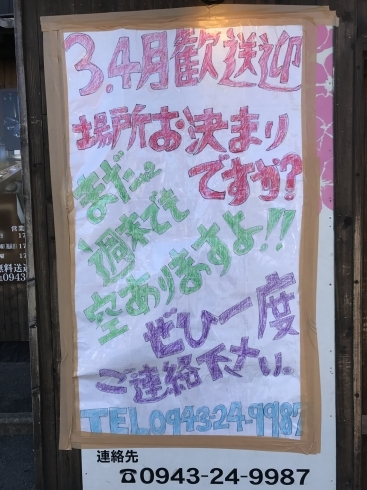 3.4月歓送迎
場所お決まり
ですか?
まだ〜
週末でも
空ありますよ!!
ぜひ一度
ご連絡下さい。
TEL0943-24-9987
連絡先
☎0943-24-9987
営業
無料送迎